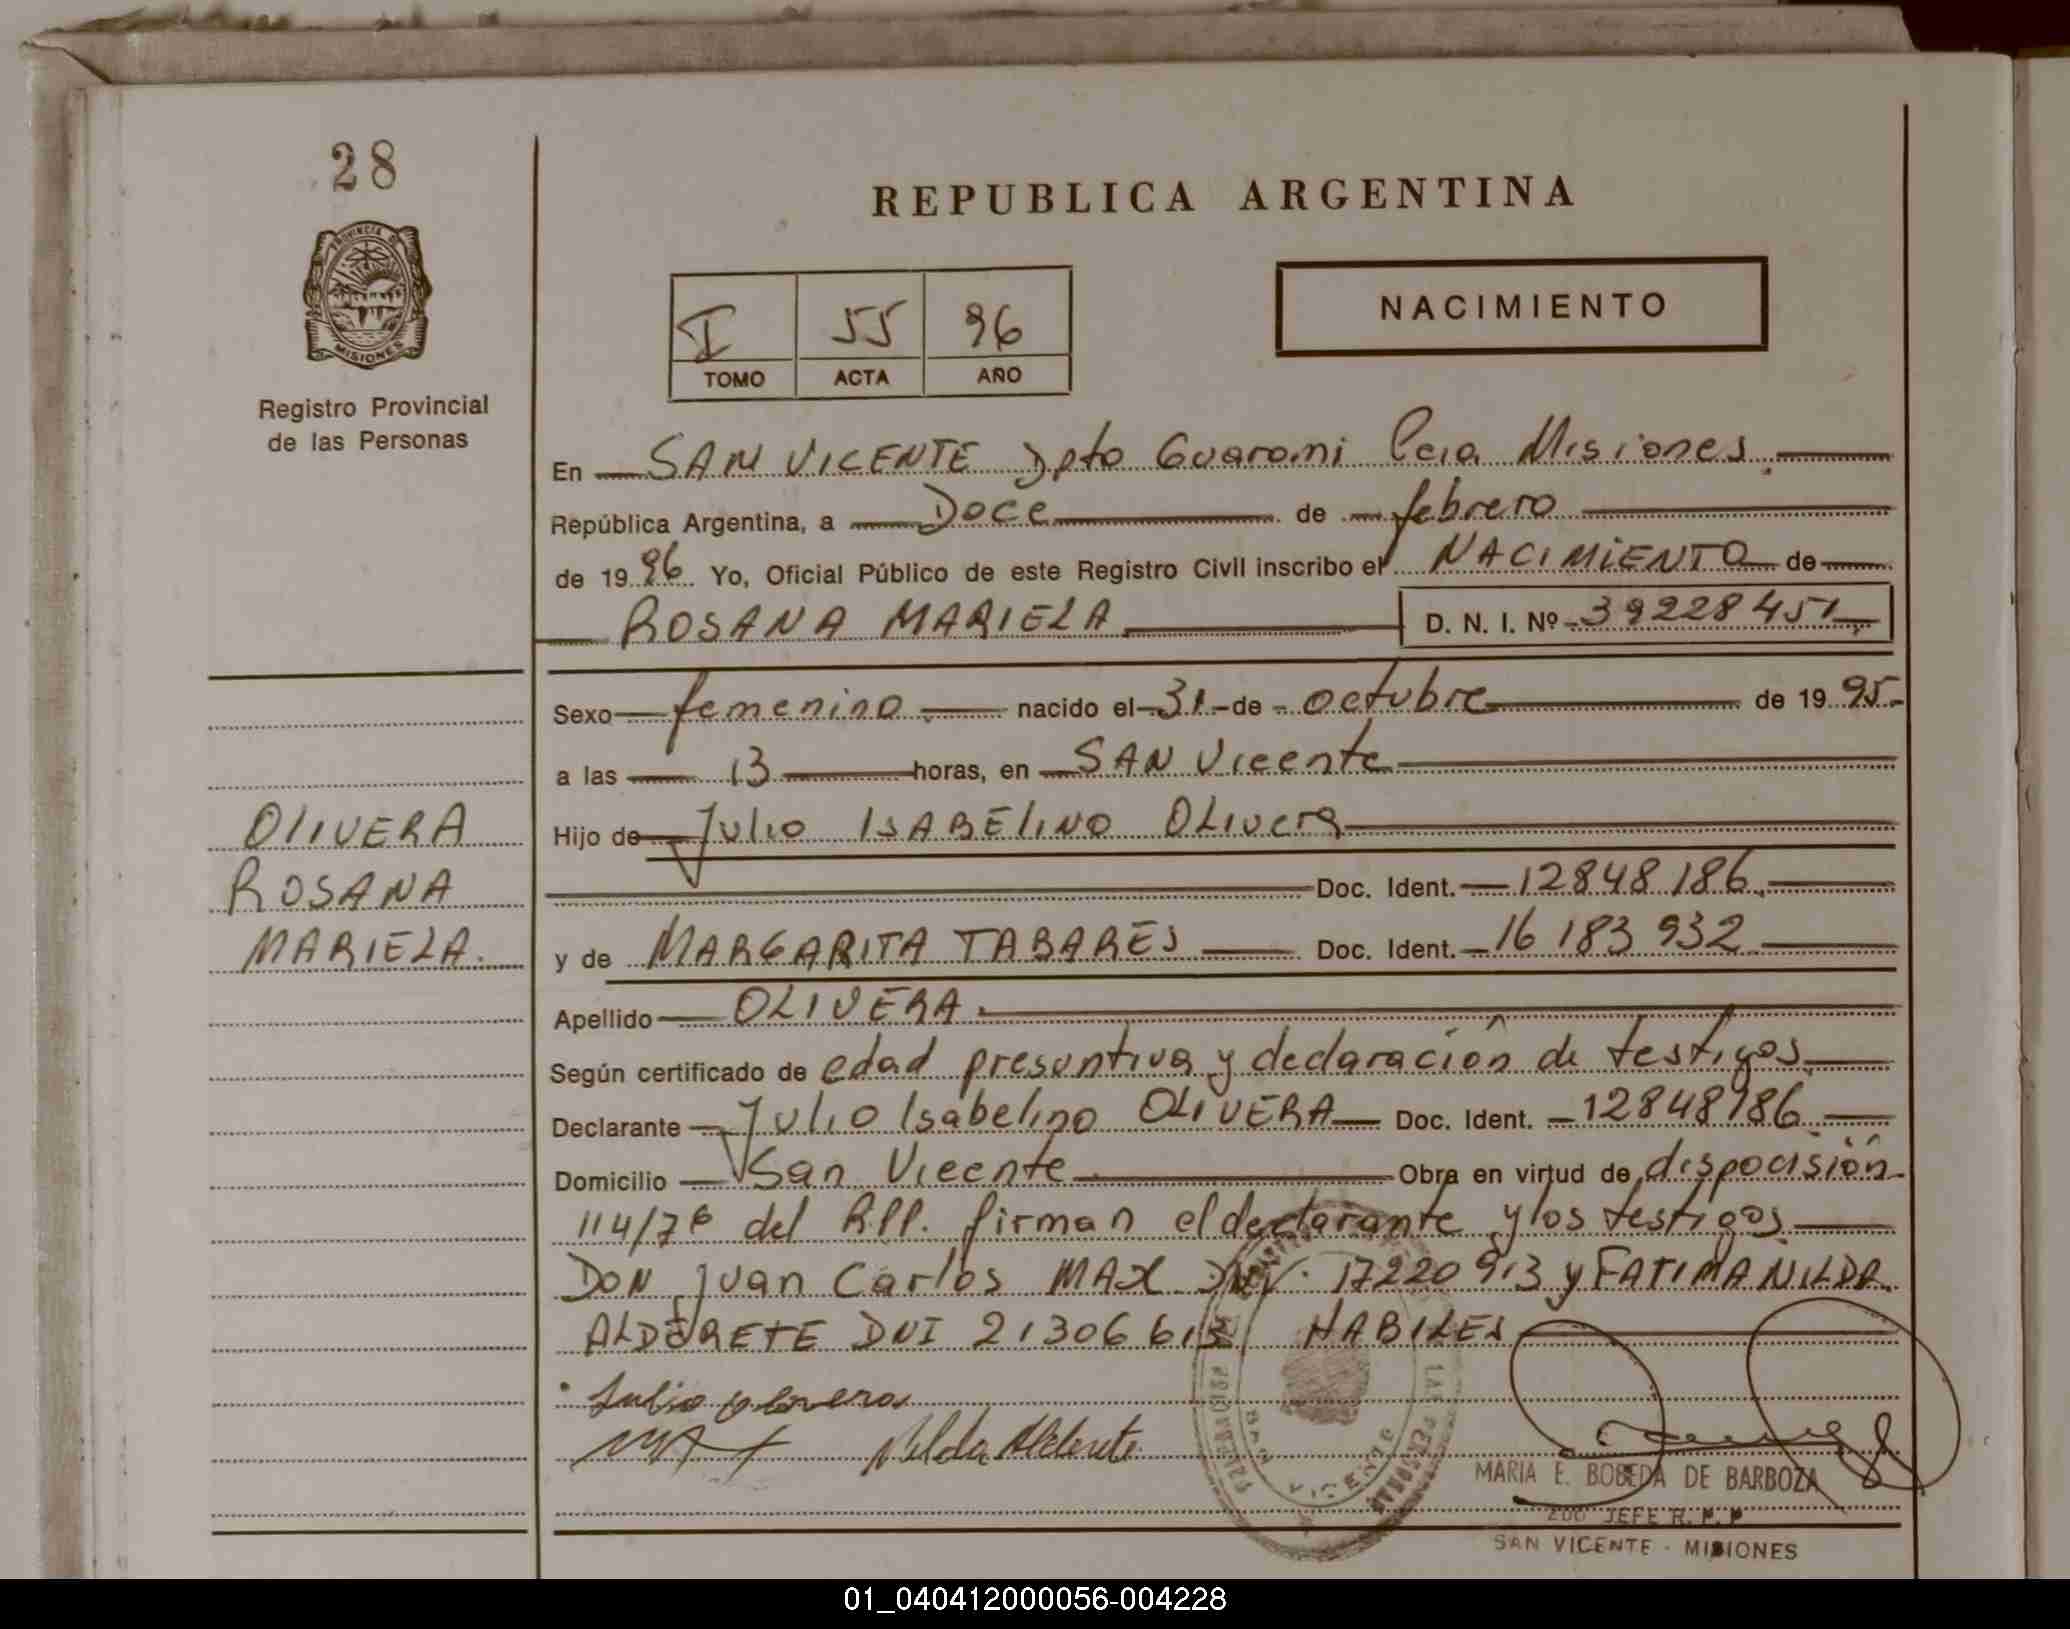 28
PROVINCIA DE
MISIONES
Registro Provincial
de las Personas
REPUBLICA ARGENTINA
I 55 96
TOMO ACTA AÑO
NACIMIENTO
En SAN VICENTE Dpto Guarani Pcia Misiones.
República Argentina, a Doce de febrero
de 1996 Yo, Oficial Público de este Registro Civil inscribo el NACIMIENTO de
ROSANA MARIELA D. N. I. Nº 39228451
Sexo femenino nacido el 31 de octubre de 1995
a las 13 horas, en SAN Vicente
Hijo de Julio ISABELINO OLIVERA
Doc. Ident. 12848186
y de MARGARITA TABARES Doc. Ident. 16183932
Apellido OLIVERA.
Según certificado de edad presuntiva y declaración de testigos
Declarante Julio Isabelino OLIVERA Doc. Ident. 12848186
Domicilio San Vicente Obra en virtud de dispocisión
114/76 del R.P.P. firman el declarante y los testigos
DON Juan Carlos MAX DNI. 17220913 y FATIMA NILDA
ALDERETE DNI 21306613 HABILES
OLIVERA
ROSANA
MARIELA.
Nilda Alderete
SAN VICENTE
MARIA E. BOBEDA DE BARBOZA
JEFE R. P. P
SAN VICENTE - MISIONES
01_040412000056-004228